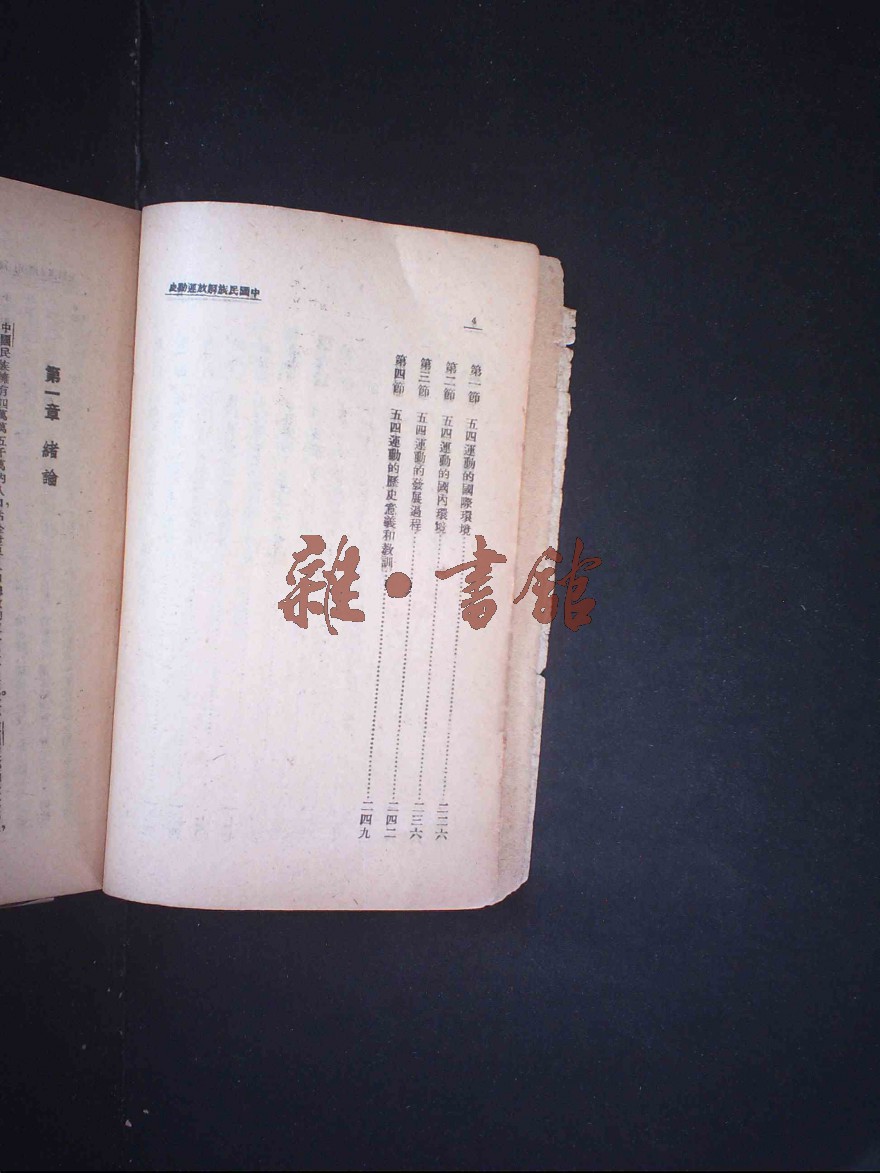 中國民族解放運動史
4
第一節 五四運動的國際環境……二二六
第二節 五四運動的國內環境……二三六
第三節 五四運動的發展過程……二四二
第四節 五四運動的歷史意義和教訓……二四九
雜·書館
第一章 緒論
中國民族擁有四萬萬五千萬的人口,